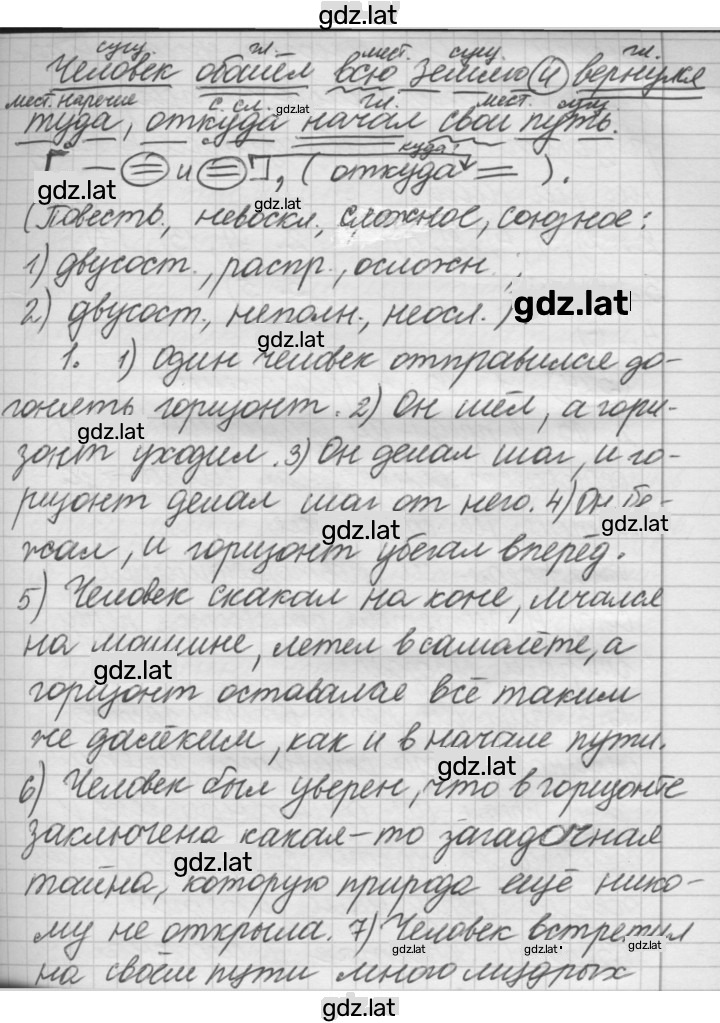 gdz.lat
сущ. гл. мест. сущ. гл.
Человек обошёл всю землю и вернулся
мест. наречие с. сл. gdz.lat гл. мест. сущ.
туда, откуда начал свой путь.
куда?
[ — = и = ], ( откуда = ).
gdz.lat
gdz.lat
(Повеств., невоскл., сложное, союзное:
1) двусост., распр., осложн.;
2) двусост., неполн., неосл.) gdz.lat
gdz.lat
1. 1) Один человек отправился до-
гонять горизонт. 2) Он шёл, а гори-
gdz.lat
зонт уходил. 3) Он делал шаг, и го-
ризонт делал шаг от него. 4) Он бе-
gdz.lat gdz.lat
жал, и горизонт убегал вперёд.
5) Человек скакал на коне, мчался
на машине, летел в самолёте, а
gdz.lat
горизонт оставался всё таким
же далёким, как и в начале пути.
gdz.lat
6) Человек был уверен, что в горизонте
заключена какая-то загадочная
gdz.lat
тайна, которую природа ещё нико-
му не открыла. 7) Человек встретил
gdz.lat gdz.lat gdz.lat
на своём пути много мудрых
gdz.lat